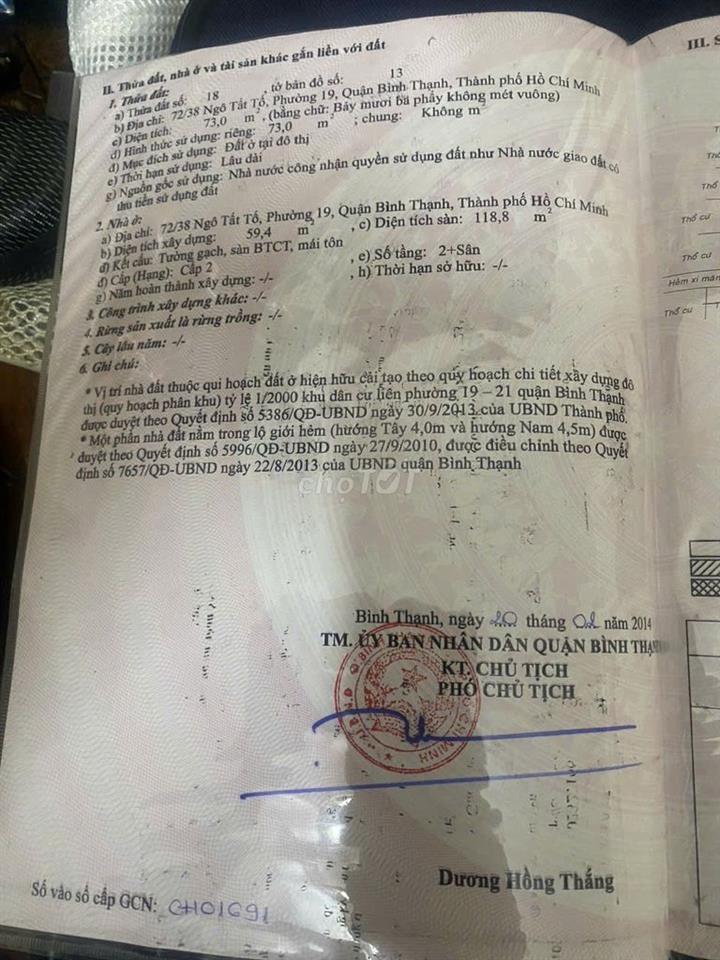 II. Thửa đất, nhà ở và tài sản khác gắn liền với đất
1. Thửa đất:
a) Thửa đất số: 18 , tờ bản đồ số: 13
b) Địa chỉ: 72/38 Ngô Tất Tố, Phường 19, Quận Bình Thạnh, Thành phố Hồ Chí Minh
c) Diện tích: 73,0 m², (bằng chữ: Bảy mươi ba phẩy không mét vuông)
d) Hình thức sử dụng: riêng: 73,0 m² ; chung: Không m²
đ) Mục đích sử dụng: Đất ở tại đô thị
e) Thời hạn sử dụng: Lâu dài
g) Nguồn gốc sử dụng: Nhà nước công nhận quyền sử dụng đất như Nhà nước giao đất có
thu tiền sử dụng đất
2. Nhà ở:
a) Địa chỉ: 72/38 Ngô Tất Tố, Phường 19, Quận Bình Thạnh, Thành phố Hồ Chí Minh
b) Diện tích xây dựng: 59,4 m² , c) Diện tích sàn: 118,8 m²
d) Kết cấu: Tường gạch, sàn BTCT, mái tôn
đ) Cấp (Hạng): Cấp 2 , e) Số tầng: 2+Sân
g) Năm hoàn thành xây dựng: -/- , h) Thời hạn sở hữu: -/-
3. Công trình xây dựng khác: -/-
4. Rừng sản xuất là rừng trồng: -/-
5. Cây lâu năm: -/-
6. Ghi chú:
* Vị trí nhà đất thuộc qui hoạch đất ở hiện hữu cải tạo theo quy hoạch chi tiết xây dựng đô
thị (quy hoạch phân khu) tỷ lệ 1/2000 khu dân cư liên phường 19 – 21 quận Bình Thạnh
được duyệt theo Quyết định số 5386/QĐ-UBND ngày 30/9/2013 của UBND Thành phố.
* Một phần nhà đất nằm trong lộ giới hẻm (hướng Tây 4,0m và hướng Nam 4,5m) được
duyệt theo Quyết định số 5996/QĐ-UBND ngày 27/9/2010, được điều chỉnh theo Quyết
định số 7657/QĐ-UBND ngày 22/8/2013 của UBND quận Bình Thạnh
chợTỐT
Bình Thạnh, ngày 20 tháng 02 năm 2014
TM. ỦY BAN NHÂN DÂN QUẬN BÌNH THẠNH
KT. CHỦ TỊCH
PHÓ CHỦ TỊCH
Dương Hồng Thắng
Số vào sổ cấp GCN: CH01691
III. S
Thổ cư
Thổ cư
Hẻm xi măn
Thổ cư